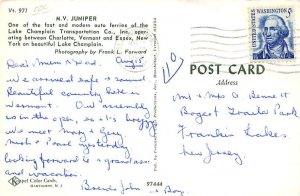 Vt. 977
M.V. JUNIPER
One of the fast and modern auto ferries of the
Lake Champlain Transportation Co., Inc. oper-
ating between Charlotte, Vermont and Essex, New
York on beautiful Lake Champlain.
Photography by Frank L. Forward
Aug 15
Dear Mum & Dad
we arrived safe & sound
Beautiful country here in
Vermont. Our assembly
is in the open, so it's
we meet Mary & Gary
& Paul yesterday
looking forward to a
and vacation.
Kappel Color Cards,
HARTFORD, N.J.
97444
POST CARD
Address
Mr & Mrs O Bennett
Trailer Park
Franklin Lakes
New Jersey
UNITED STATES
WASHINGTON
5¢